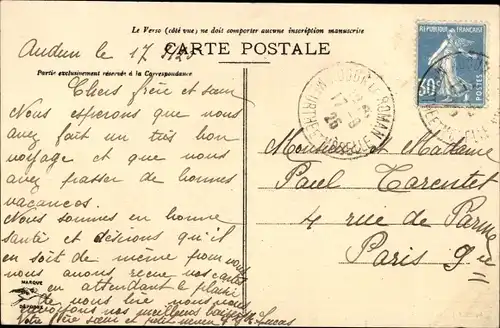 Le Verso (côté vue) ne doit comporter aucune inscription manuscrite
CARTE POSTALE
Partie exclusivement réservée à la Correspondance
Audun le 17
Chers frère et sœur
Nous esperons que nous
avez fait un très bon
voyage et que nous
avez passer de bonnes
vacances.
Nous sommes en bonne
santé et désirons qu'il
en soit de même pour vous
nous avons reçue vos cartes
en attendant le plaisir
de vous lire nous vous
envoyons nos meilleurs baisers
Votre frère sœur et petit neveu Lucas
Monsieur et Madame
Paul Tarentet
4 rue de Parme
Paris 9e
REPUBLIQUE FRANÇAISE
30c
AUDUN-LE-ROMAN
17 8 25
MARQUE
DÉPOSÉE